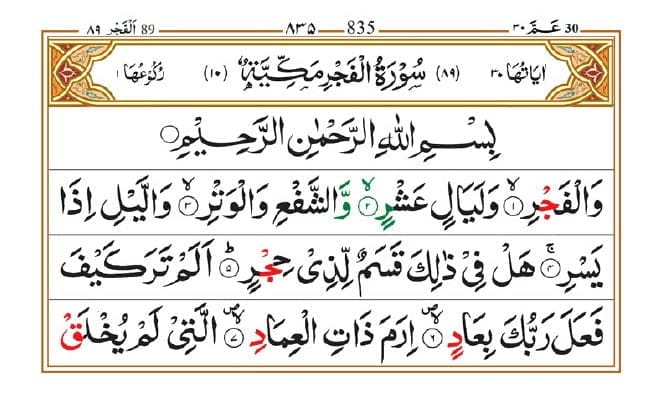 30 عَـمَّ ٣٠ 835 ٨٣٥ 89 اَلْفَجْر ٨٩
اٰيَاتُهَا ٣٠ (٨٩) سُوْرَةُ الْفَجْرِ مَكِّيَّةٌ (١٠) رُكُوْعُهَا ١
بِسْــمِ اللّٰهِ الرَّحْمٰنِ الرَّحِيْمِ۝
وَالْفَجْرِ۝١ۙ وَلَيَالٍ عَشْرٍ۝٢ۙ وَّالشَّفْعِ وَالْوَتْرِ۝٣ۙ وَالَّيْلِ اِذَا
يَسْرِ۝٤ۚ هَلْ فِيْ ذٰلِكَ قَسَمٌ لِّذِيْ حِجْرٍ۝٥ؕ اَلَمْ تَرَ كَيْفَ
فَعَلَ رَبُّكَ بِعَادٍ۝٦ۙ اِرَمَ ذَاتِ الْعِمَادِ۝٧ۙ الَّتِيْ لَمْ يُخْلَقْ